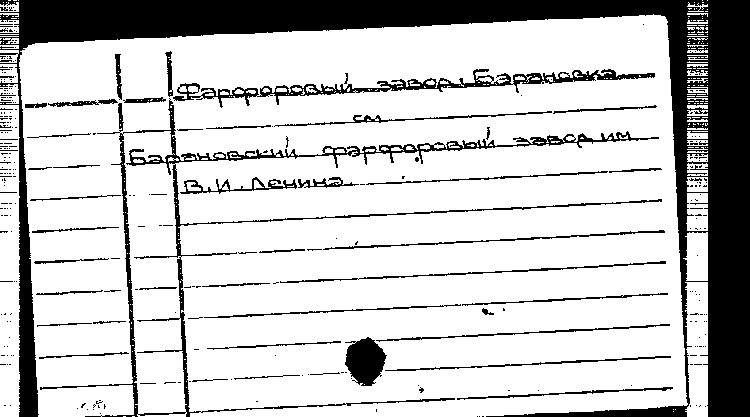 Фарфоровый завод, Барановка
см
Барановский фарфоровый завод им
В.И. Ленина